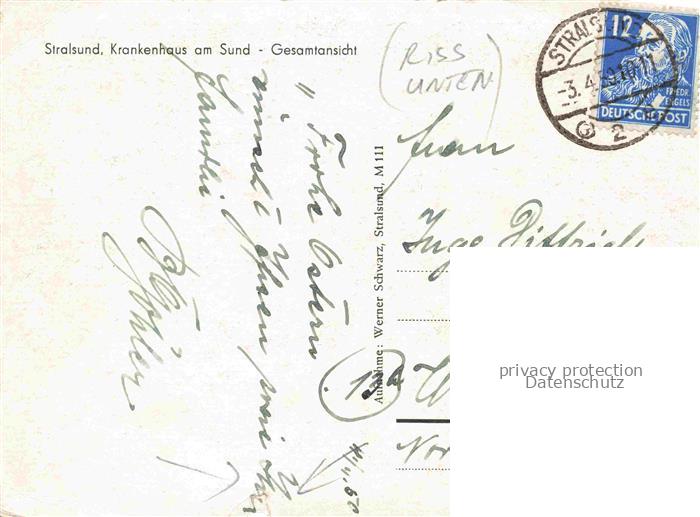 Stralsund, Krankenhaus am Sund - Gesamtansicht
(RISS
UNTEN)
STRALSUND
-3.4.
2
12
FRIEDR.
ENGELS
DEUTSCHE POST
Aufnahme: Werner Schwarz, Stralsund, M 111
„Frohe Ostern
wünscht Ihnen
Familie
Köhler
Frau
Inge Dittrich
13a W
Nor
privacy protection
Datenschutz